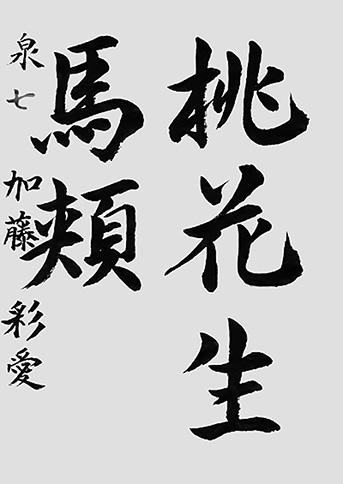 桃花生
馬頬
泉七加藤彩愛